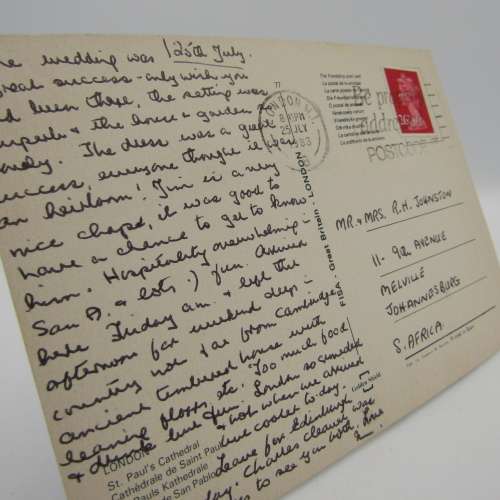 25th July.
he wedding was a
great success - only wish you
had been there, the setting was
superb & the house & garden
lovely. The dress was a great
success, everyone thought it was
an heirloom! Jim is a very
nice chap, it was good to
have a chance to get to know
him. Hospitality overwhelming -
San A. & lots :) fun. Arrived
here Friday a.m. & left the
afternoon for weekend deep in
country nr. Cambridge,
ancient timbered house with
leaning floors, etc. Too much food
& drink but fun. London so crowded
& hot when we arrived
but cooler to-day.
Leave for Edinburgh
day. Charles cleaver was
to see you both. Love
LONDON
St. Paul's Cathedral
Cathédrale de Saint Paul
Pauls Kathedrale
de San Pablo
FISA - Great Britain - LONDON
Golden Shield
LONDON
8 PM
25 JLY
1983
Be pr
addre
POSTCO
MR. & MRS. R.H. JOHNSTON
11 - 9th AVENUE
MELVILLE
JOHANNESBURG
S. AFRICA.